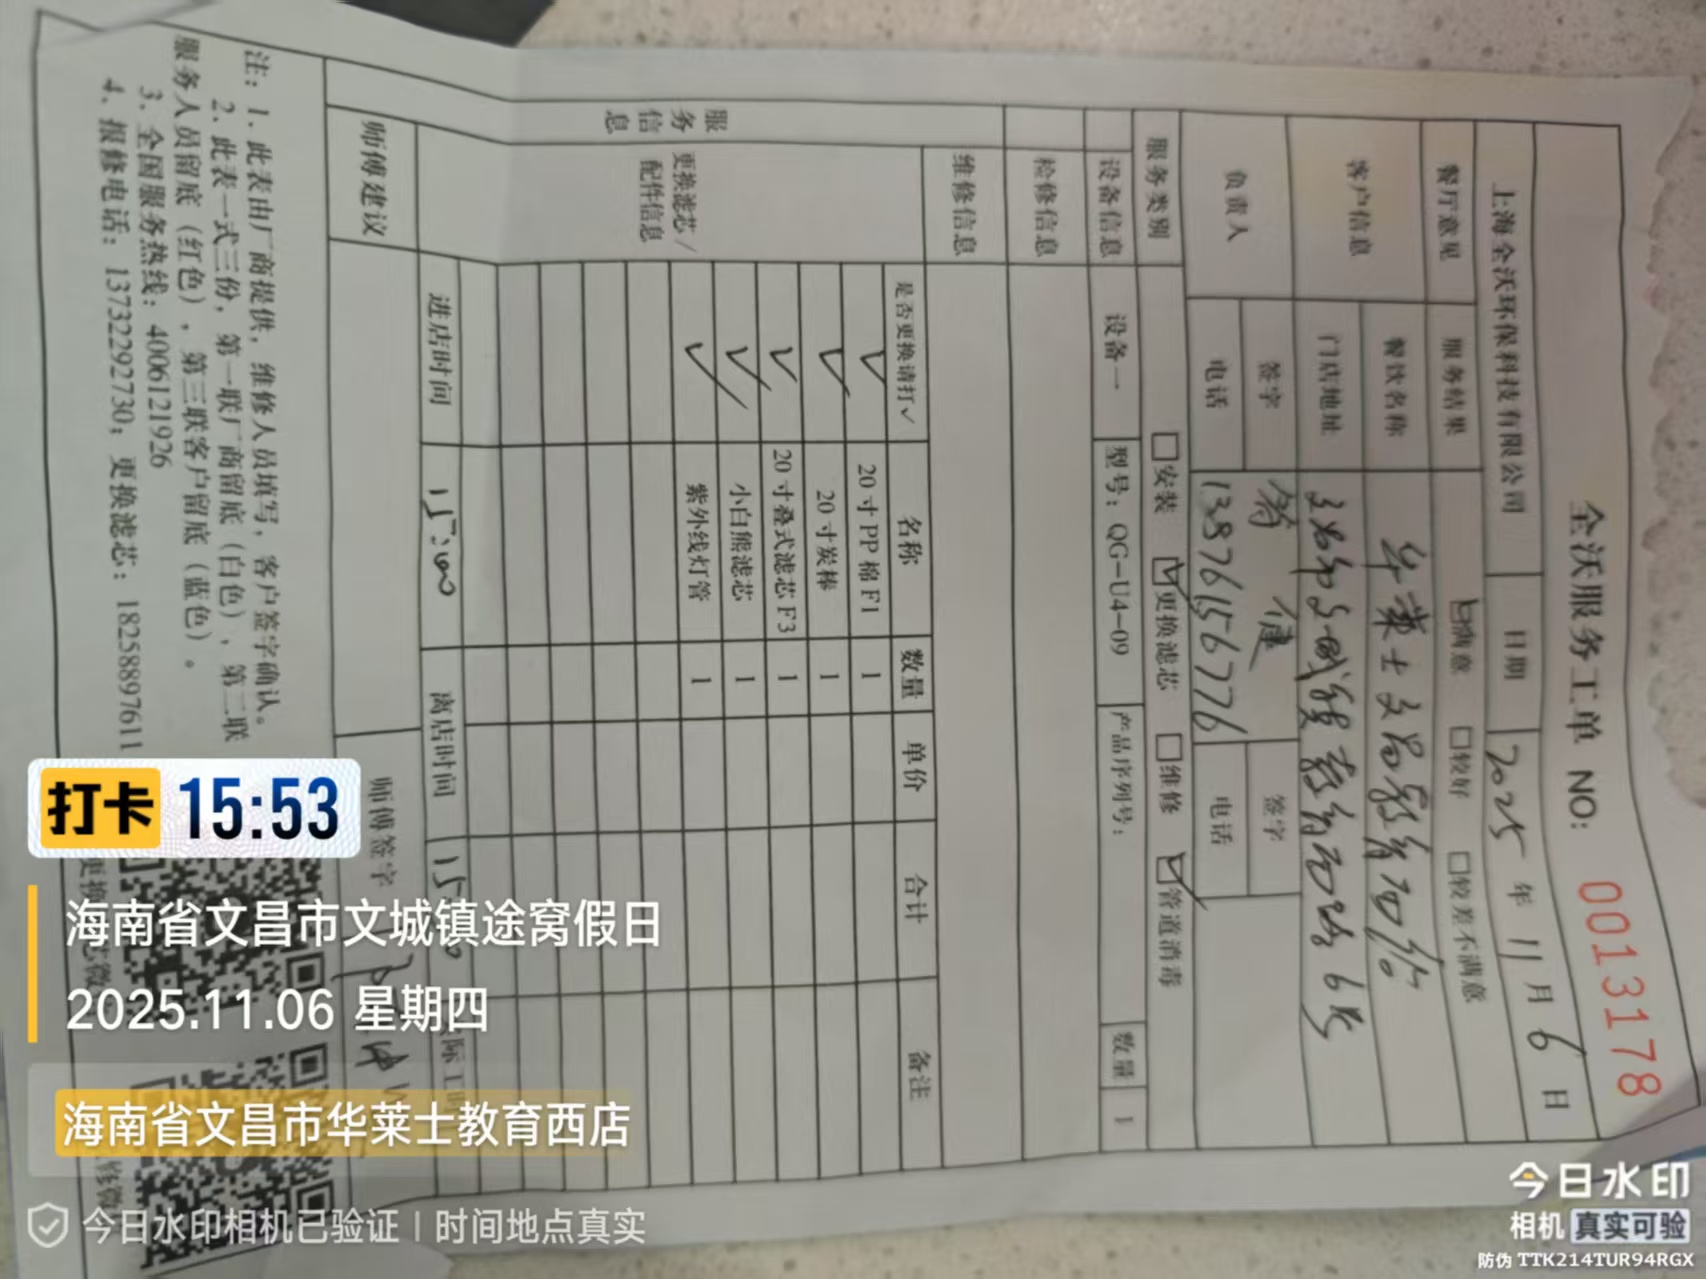 全沃服务工单 NO: 0013178
上海全沃环保科技有限公司 日期 2025 年 11 月 6 日
餐厅意见 服务结果 ☑满意 □较好 □较差不满意
客户信息 餐饮名称 华莱士文昌教育西店
门店地址 文昌市文城镇教育西路6号
负责人 签字 健 签字
电话 13876156776 电话
服务类别 □安装 ☑更换滤芯 □维修 ☑管道消毒
设备信息 设备一 型号：QG-U4-09 产品序列号： 数量 1
检修信息
维修信息
服务信息
更换滤芯/配件信息
是否更换请打✓ 名称 数量 单价 合计 备注
✓ 20寸PP棉F1 1
✓ 20寸炭棒 1
✓ 20寸叠式滤芯F3 1
✓ 小白熊滤芯 1
✓ 紫外线灯管 1
进店时间 15:00 离店时间 15
师傅建议 师傅签字
注：1、此表由厂商提供，维修人员填写，客户签字确认。
2、此表一式三份，第一联厂商留底（白色），第二联
服务人员留底（红色），第三联客户留底（蓝色）。
3、全国服务热线：4006121926
4、报修电话：13732292730；更换滤芯：18258897611
打卡 15:53
海南省文昌市文城镇途窝假日
2025.11.06 星期四
海南省文昌市华莱士教育西店
今日水印相机已验证 | 时间地点真实
今日水印
相机 真实可验
防伪 TTK214TUR94RGX